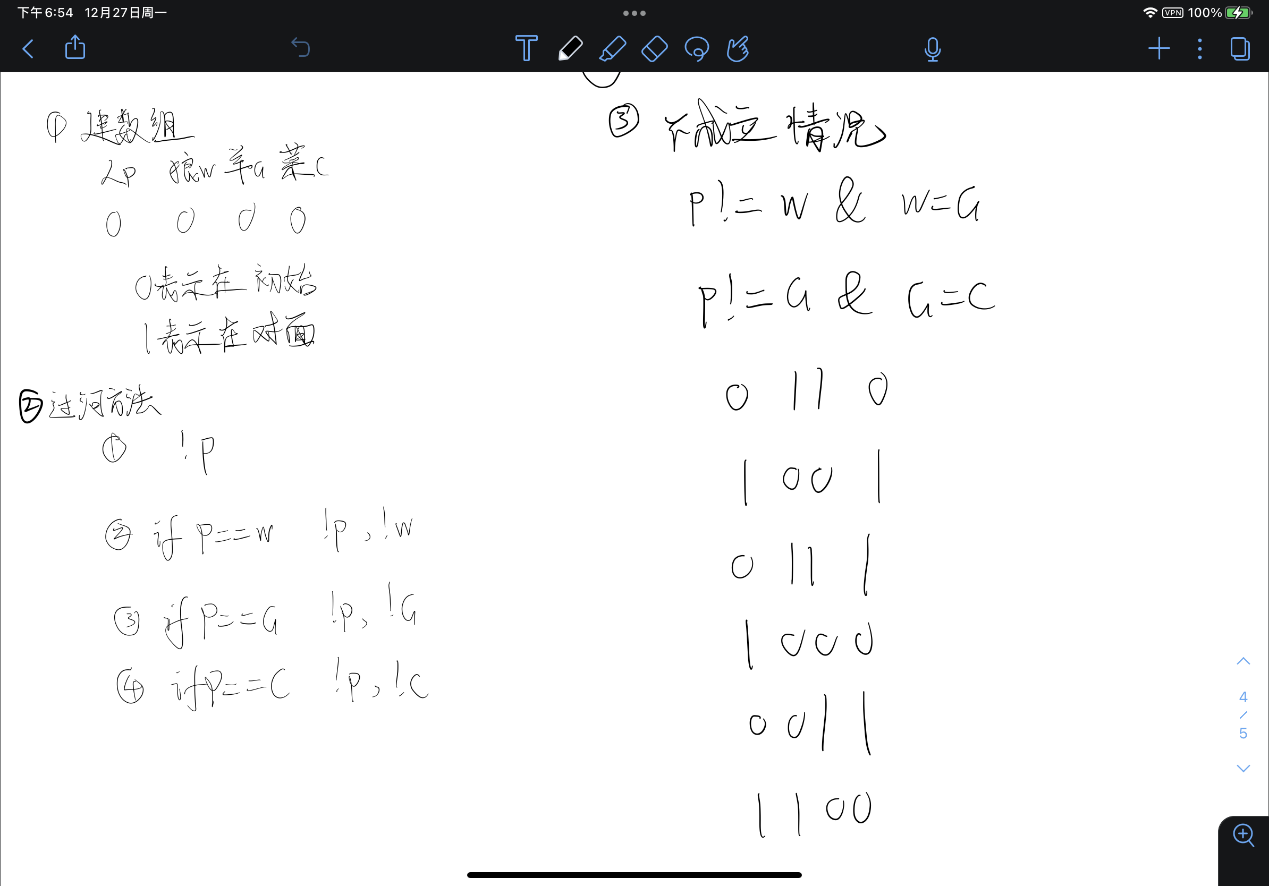 下午6:54 12月27日周一
VPN 100%
① 建数组
人P 狼W 羊G 菜C
0 0 0 0
0表示在初始
1表示在对面
②过河方法
① !P
② if P==W !P,!W
③ if P==G !P,!G
④ if P==C !P,!C
③ 不成立情况
P!=W & W=G
P!=G & G=C
0 1 1 0
1 0 0 1
0 1 1 1
1 0 0 0
0 0 1 1
1 1 0 0
4
/
5